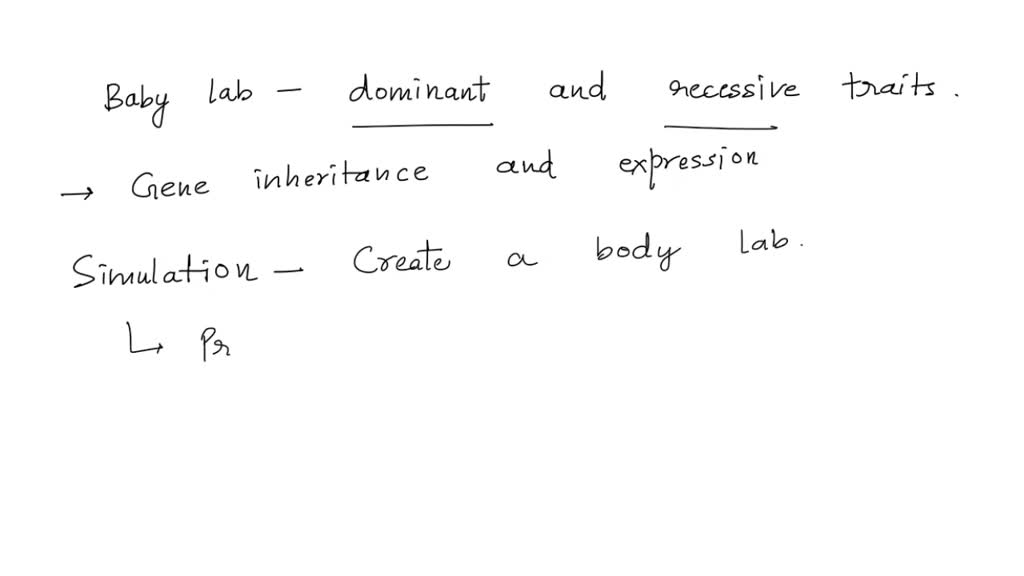 Baby lab - dominant and recessive traits.
→ Gene inheritance and expression
Simulation - Create a body lab.
↳ Pr